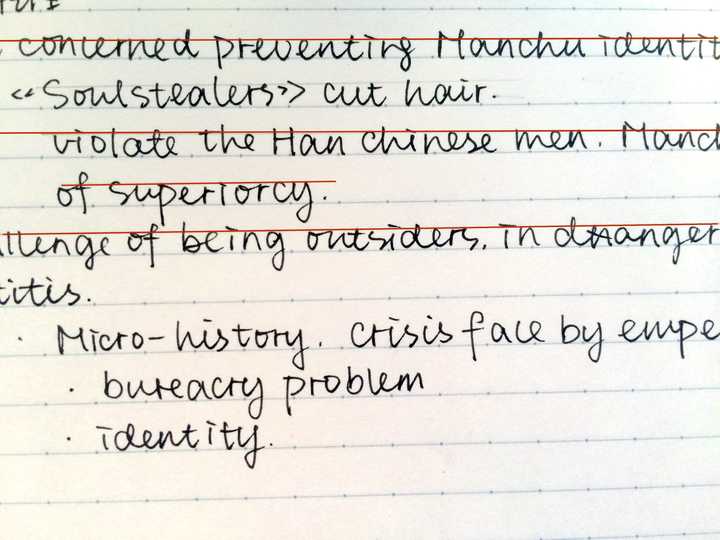 concerned preventing Manchu identit
«Soulstealers» cut hair.
violate the Han Chinese men. Manch
of superiorcy.
llenge of being outsiders, in danger
titis.
· Micro-history. Crisis face by empe
· bureacry problem
· identity.